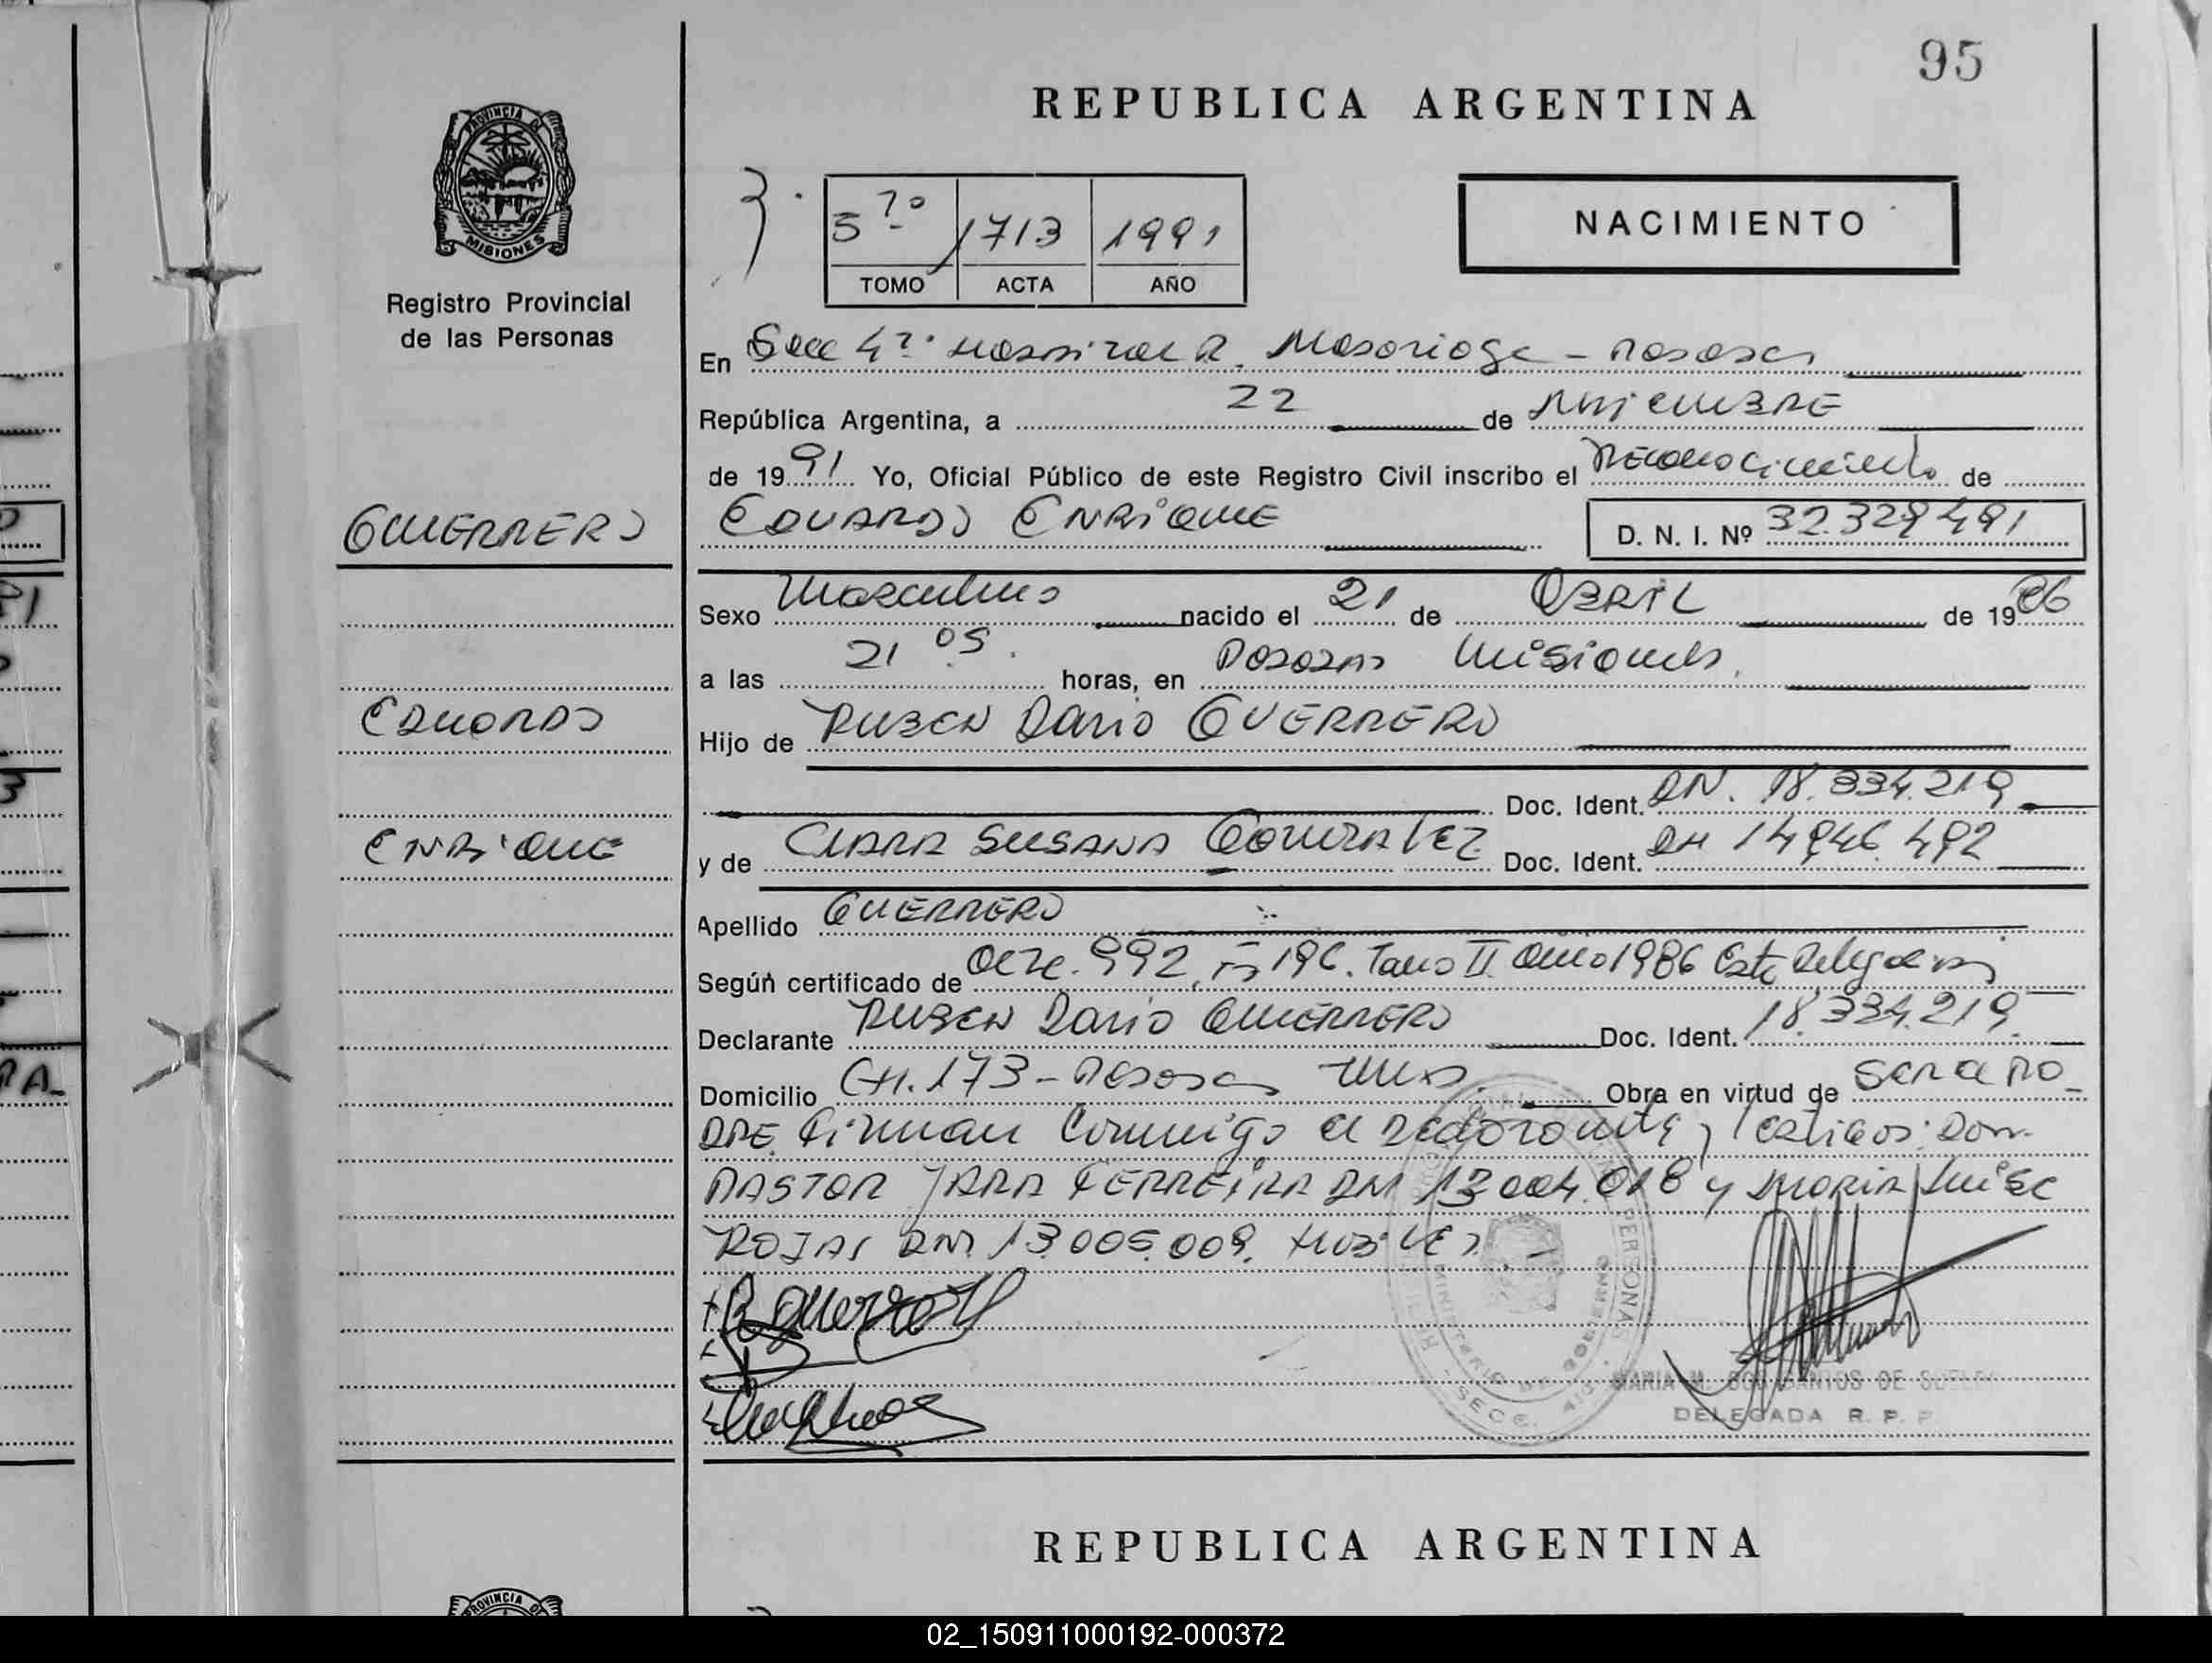 95
REPUBLICA ARGENTINA
PROVINCIA DE MISIONES
Registro Provincial
de las Personas
5to 1713 1991
TOMO ACTA AÑO
NACIMIENTO
En Secc 4ta. Hospital R. Madariaga - Posadas
República Argentina, a 22 de
de 1991 Yo, Oficial Público de este Registro Civil inscribo el Reconocimiento de
GUERRERO
EDUARDO ENRIQUE D. N. I. Nº 32.329.491
Sexo Masculino nacido el 21 de ABRIL de 1986
a las 21 05. horas, en Posadas Misiones.
EDUARDO
Hijo de RUBEN Dario GUERRERO
Doc. Ident. DN. 18.334.219
ENRIQUE
y de CLARA SUSANA GONZALEZ Doc. Ident. DN 14946.492
Apellido GUERRERO
Según certificado de Acta. 992, Fº 196. Tomo II Año 1986 Esta Delegación
Declarante RUBEN Dario GUERRERO Doc. Ident. 18.334.219
Domicilio CH. 173 - Posadas Mnes. Obra en virtud de ser el PA-
DRE. Firman Conmigo el declarante y testigos: Don
PASTOR JARA FERREIRA DNI 13.004.018 y MARIA Luisa
ROJAS DNI 13.005.009.
R Guerrero
MARIA M. DOS SANTOS DE
DELEGADA R. P. P.
REPUBLICA ARGENTINA
PROVINCIA DE
02_150911000192-000372